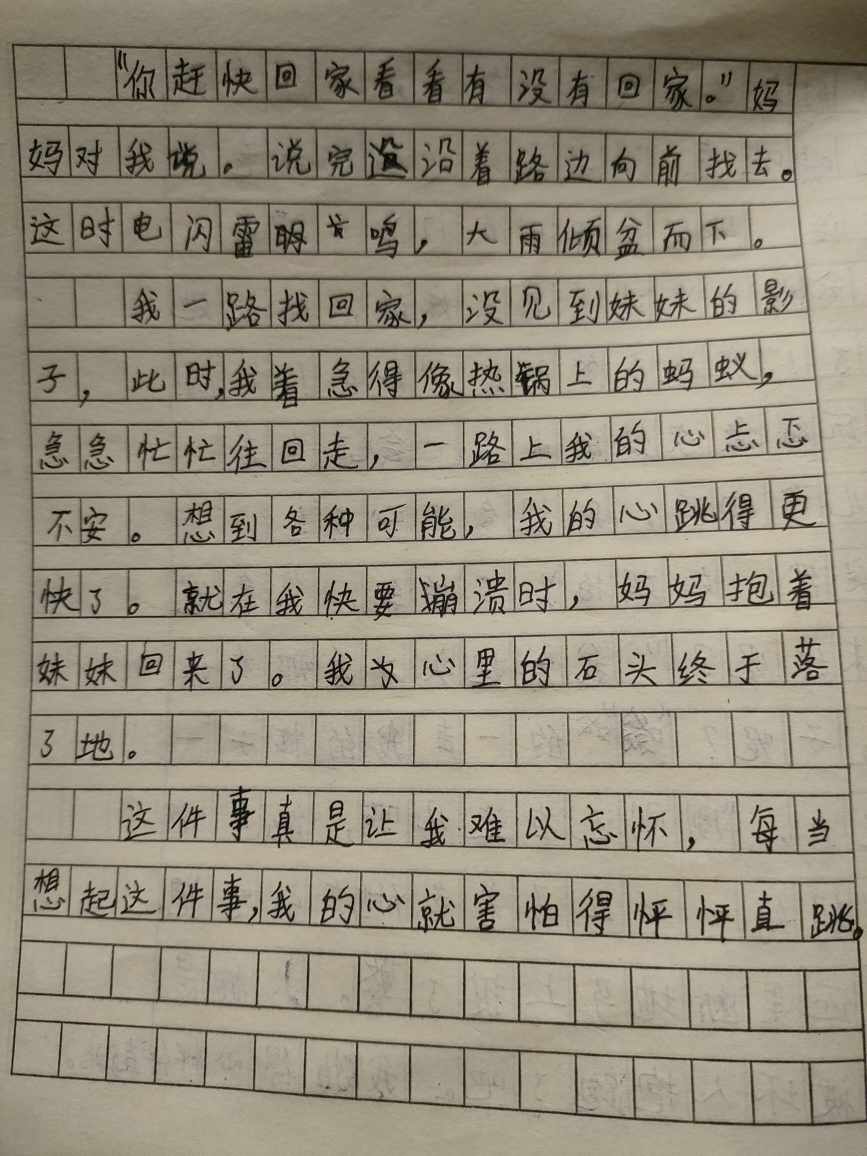 “你赶快回家看看有没有回家。”妈
妈对我说。说完沿着路边向前找去。
这时电闪雷鸣，大雨倾盆而下。
我一路找回家，没见到妹妹的影
子，此时，我着急得像热锅上的蚂蚁，
急急忙忙往回走，一路上我的心忐忑
不安。想到各种可能，我的心跳得更
快了。就在我快要蹦溃时，妈妈抱着
妹妹回来了。我心里的石头终于落
了地。
这件事真是让我难以忘怀，每当
想起这件事，我的心就害怕得怦怦直跳。